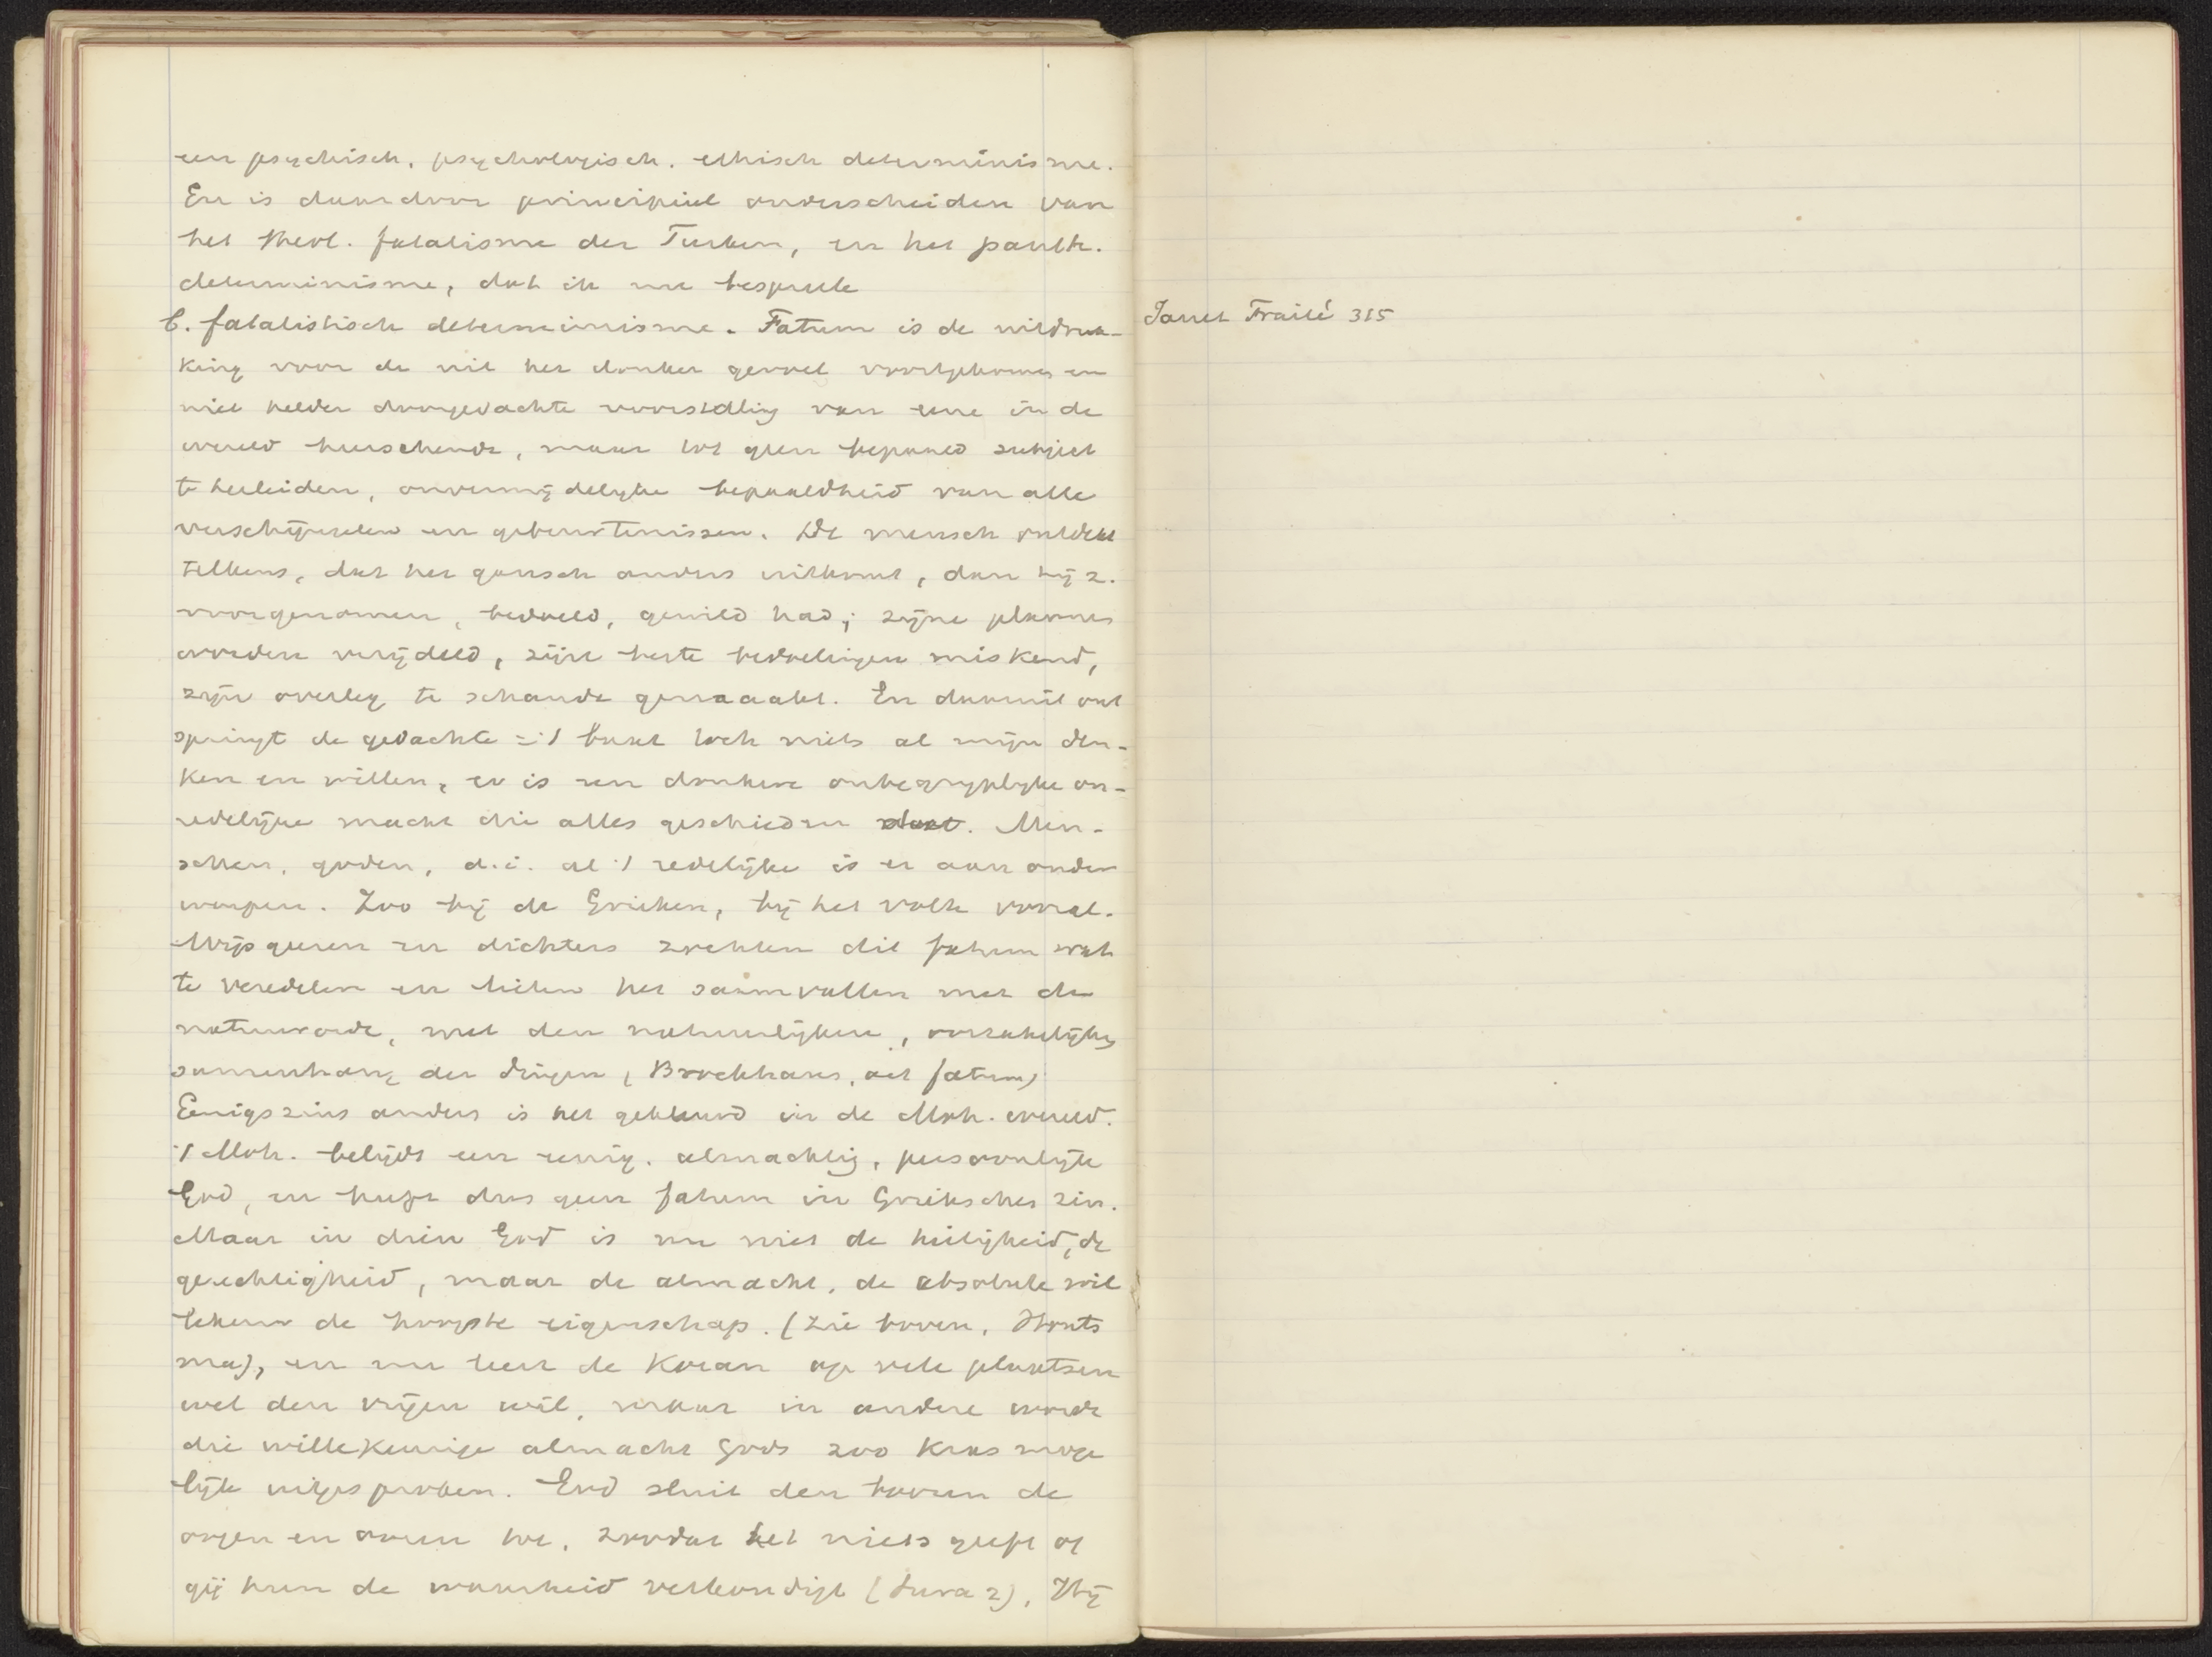 een psychisch, psychologisch. ethisch determinisme.
En is daardoor principieel onderscheiden van
het theol. fatalisme der Turken, en het panth.
determinisme, dat ik nu bespreek
b. fatalistisch determinisme. Fatum is de uitdruk-
king voor de uit het donker gevoel voortgekomen en
niet helder doorgedachte voorstelling van eene in de
wereld heerschende, maar tot geen bepaald subject
te herleiden, onvermijdelijke bepaaldheid van alle
verschijnselen en gebeurtenissen. De mensch ontdekt
telkens, dat het gansch anders uitkomt, dan hij z.
voorgenomen, bedoeld, gewild had; zijne plannen
worden verijdeld, zijn beste bedoelingen miskend,
zijn overleg te schande gemaaakt. En daaruit ont
springt de gedachte =: 't baat toch niets al mijn den-
ken en willen, er is een donkere onbegrijplijke on-
redelijke macht die alles geschieden doet. Men-
schen, goden, d.i. al 't redelijke is er aan onder
worpen. Zoo bij de Grieken, bij het volk vooral.
Wijsgeeren en dichters zochten dit fatum wat
te veredelen en lieten het saamvallen met de
natuurorde, met den natuurlijken, oorzakelijken
samenhang der dingen (Brockhaus, art fatum)
Eenigszins anders is het gekleurd in de Moh. wereld.
't Moh. belijdt een eenig. almachtig, persoonlijk
God, en heeft dus geen fatum in Griekschen zin.
Maar in dien God is nu niet de heiligheid, de
gerechtigheid, maar de almacht, de absolute wil
de hoogste eigenschap. (zie boven, Houts
ma), en nu leert de Koran op vele plaatsen
wel den vrijen wil, maar in andere wordt
die willekeurige almacht Gods zoo kras moge
lijk uitgesproken. God sluit den boozen de
oogen en ooren toe, zoodat het niets geeft of
gij hun de waarheid verkondigt (Sura 2), Hij
Janet Traité 315